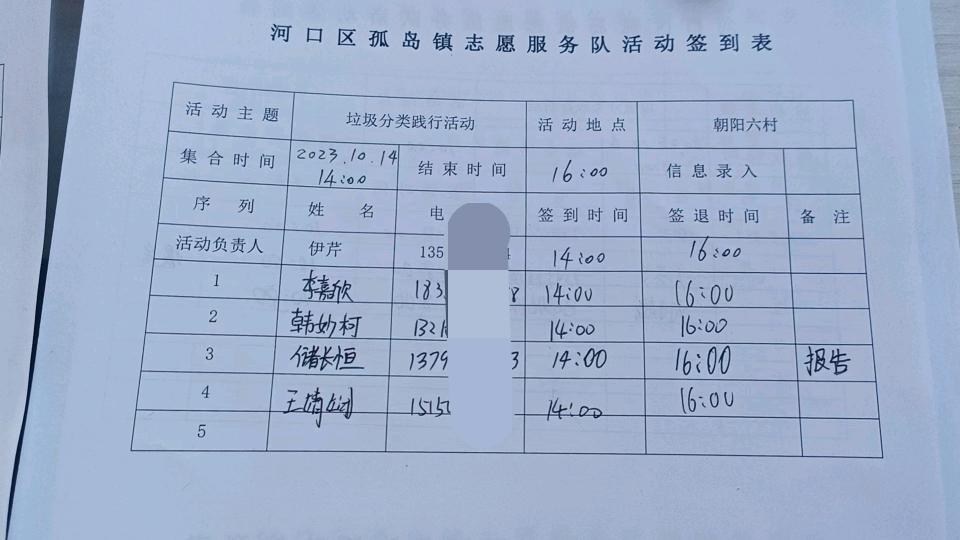 河口区孤岛镇志愿服务队活动签到表
活动主题 垃圾分类践行活动 活动地点 朝阳六村
集合时间 2023.10.14 14:00 结束时间 16:00 信息录入
序列 姓名 电 签到时间 签退时间 备注
活动负责人 伊芹 135 4 14:00 16:00
1 李嘉欣 183 8 14:00 16:00
2 韩妙柯 1321 14:00 16:00
3 储长恒 1379 3 14:00 16:00 报告
4 王婧 1515 14:00 16:00
5